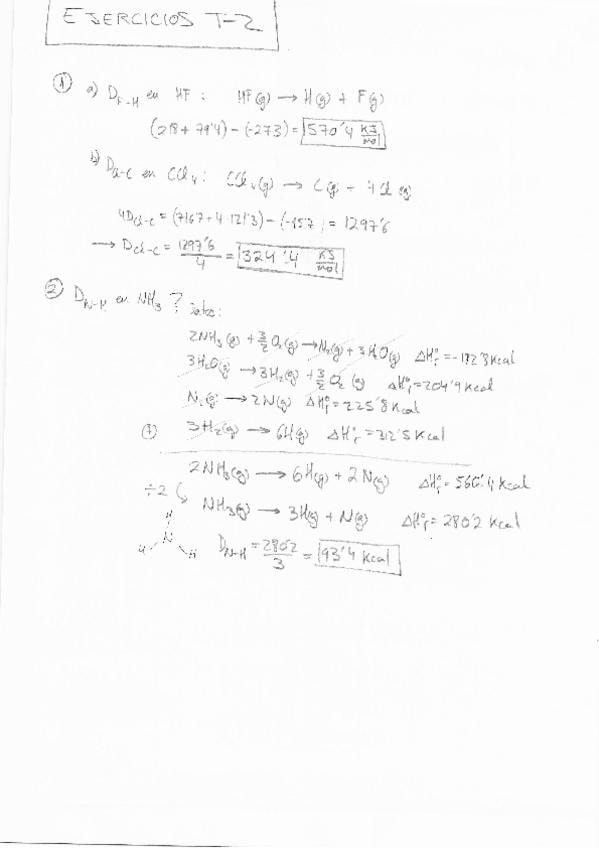 EJERCICIOS T-2
① a) D_F-H en HF : HF(g) → H(g) + F(g)
(218 + 79'4) - (-273) = 570'4 KJ/mol
b) D_Cl-C en CCl4 : CCl4(g) → C(g) + 4Cl(g)
4D_Cl-C = (716'7 + 4·121'3) - (-95'7) = 1297'6
→ D_Cl-C = 1297'6/4 = 324'4 KJ/mol
② D_N-H en NH3 ? Datos:
2NH3(g) + 3/2 O2(g) → N2(g) + 3H2O(g) ΔH°r = -182'8 Kcal
3H2O(g) → 3H2(g) + 3/2 O2(g) ΔH°r = 204'9 Kcal
N2(g) → 2N(g) ΔH°r = 225'8 Kcal
(+) 3H2(g) → 6H(g) ΔH°r = 312'5 Kcal
2NH3(g) → 6H(g) + 2N(g) ΔH°r = 560'4 Kcal
÷2
NH3(g) → 3H(g) + N(g) ΔH°r = 280'2 Kcal
H
N
H H
D_N-H = 280'2/3 = 93'4 Kcal